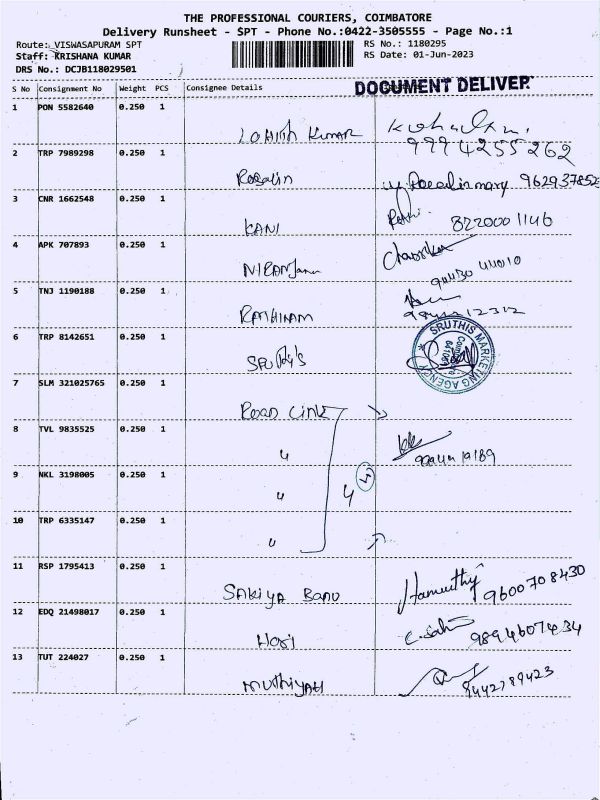 THE PROFESSIONAL COURIERS, COIMBATORE
Delivery Runsheet - SPT - Phone No.:0422-3505555 - Page No.:1
Route: VISWASAPURAM SPT RS No.: 1180295
Staff: KRISHANA KUMAR RS Date: 01-Jun-2023
DRS No.: DCJB118029501
S No Consignment No Weight PCS Consignee Details DOCUMENT DELIVER
1 PON 5582640 0.250 1
LOHITH KUMAR 9994255262
2 TRP 7989298 0.250 1
Rosalin 962937852
3 CNR 1662548 0.250 1
KANI 8220001146
4 APK 707893 0.250 1
NIRANJAN
5 TNJ 1190188 0.250 1
RATHINAM
6 TRP 8142651 0.250 1 SRUTHIS MARKETING AGENCY
SRUTHY'S
7 SLM 321025765 0.250 1
ROAD LINK
8 TVL 9835525 0.250 1
"
9 NKL 3198005 0.250 1
" 4
10 TRP 6335147 0.250 1
"
11 RSP 1795413 0.250 1
SAKIYA BANU 9600708430
12 EDQ 21498017 0.250 1
HOSI 9894607434
13 TUT 224027 0.250 1
MUTHIYAH 8442789423